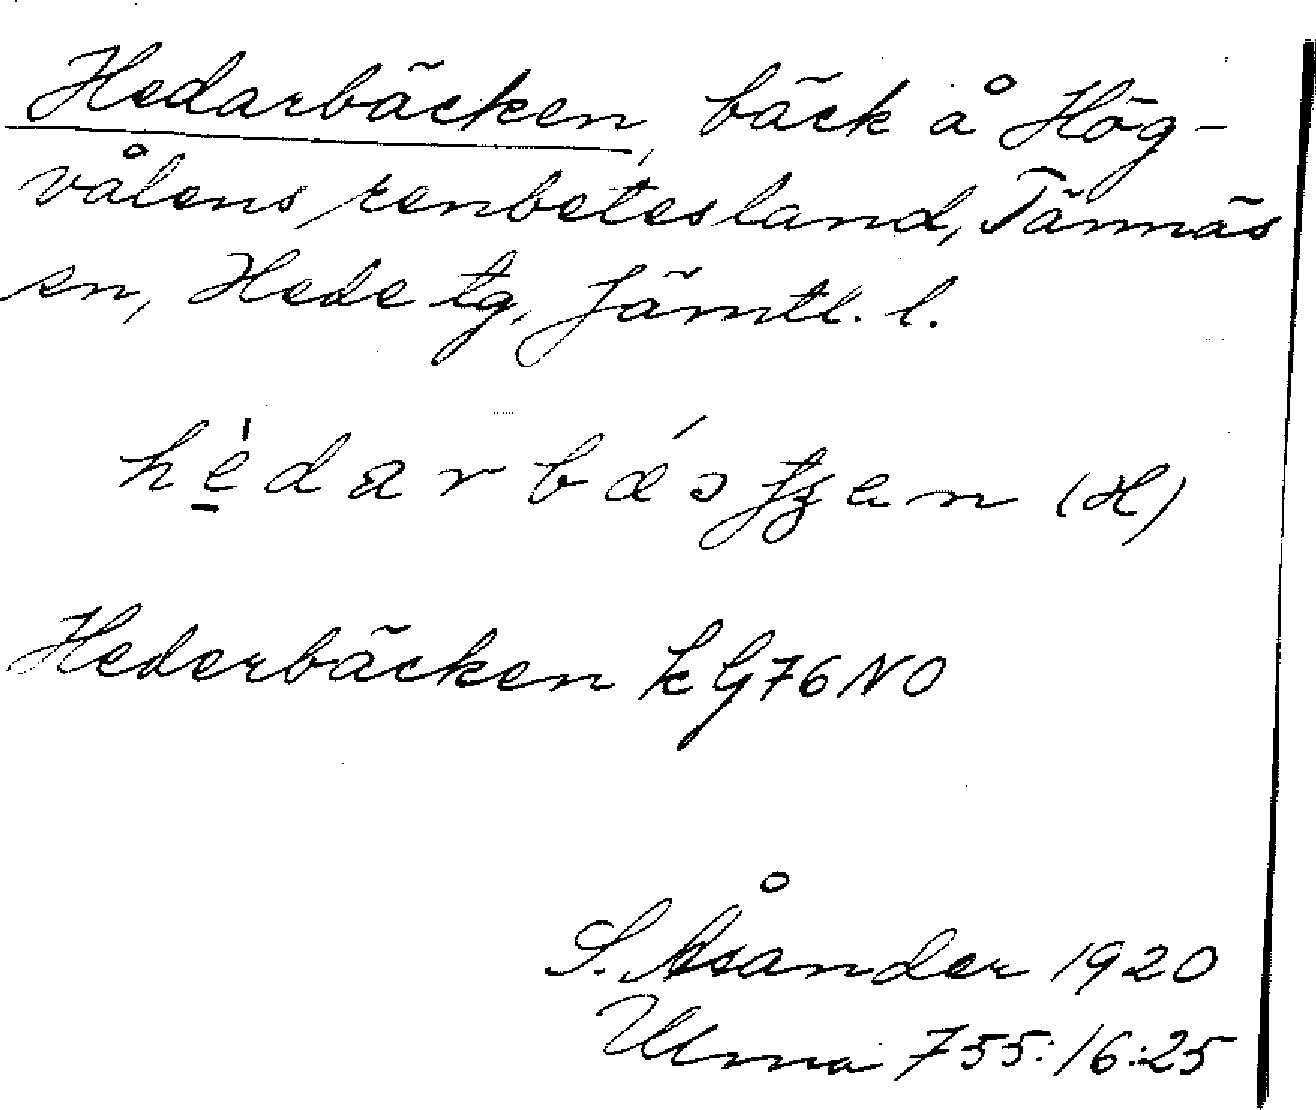 Hedarbäcken, bäck å Hög-
vålens renbetesland, Tännäs
sn, Hede tg, Jämtl. l.
(H)
Hederbäcken kG76NO
S. Åsander 1920
Ulma 755:16:25